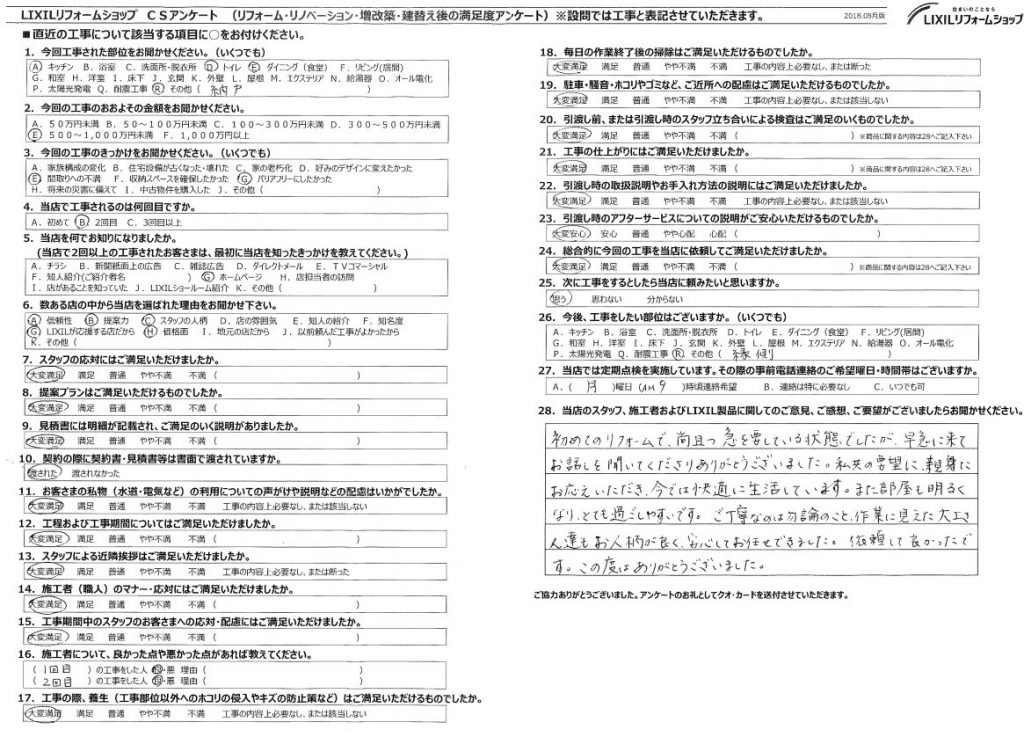 LIXILリフォームショップ CSアンケート (リフォーム・リノベーション・増改築・建替え後の満足度アンケート) ※設問では工事と表記させていただきます。
2018.08月版
住まいのことなら
LIXILリフォームショップ
■直近の工事について該当する項目に○をお付けください。
1. 今回工事された部位をお聞かせください。(いくつでも)
A. キッチン B. 浴室 C. 洗面所・脱衣所 D. トイレ E. ダイニング(食堂) F. リビング(居間)
G. 和室 H. 洋室 I. 床下 J. 玄関 K. 外壁 L. 屋根 M. エクステリア N. 給湯器 O. オール電化
P. 太陽光発電 Q. 耐震工事 R. その他 ( 納戸 )
2. 今回の工事のおおよその金額をお聞かせください。
A. 50万円未満 B. 50~100万円未満 C. 100~300万円未満 D. 300~500万円未満
E. 500~1,000万円未満 F. 1,000万円以上
3. 今回の工事のきっかけをお聞かせください。(いくつでも)
A. 家族構成の変化 B. 住宅設備が古くなった・壊れた C. 家の老朽化 D. 好みのデザインに変えたかった
E. 間取りへの不満 F. 収納スペースを確保したかった G. バリアフリーにしたかった
H. 将来の災害に備えて I. 中古物件を購入した J. その他 ( )
4. 当店で工事されるのは何回目ですか。
A. 初めて B. 2回目 C. 3回目以上
5. 当店を何でお知りになりましたか。
(当店で2回以上の工事されたお客さまは、最初に当店を知ったきっかけを教えてください。)
A. チラシ B. 新聞紙面上の広告 C. 雑誌広告 D. ダイレクトメール E. TVコマーシャル
F. 知人紹介(ご紹介者名 ) G. ホームページ H. 店担当者の訪問
I. 店があることを知っていた J. LIXILショールーム紹介 K. その他 ( )
6. 数ある店の中から当店を選ばれた理由をお聞かせ下さい。
A. 信頼性 B. 提案力 C. スタッフの人柄 D. 店の雰囲気 E. 知人の紹介 F. 知名度
G. LIXILが応援する店だから H. 価格面 I. 地元の店だから J. 以前頼んだ工事がよかったから
K. その他 ( )
7. スタッフの応対にはご満足いただけましたか。
大変満足 満足 普通 やや不満 不満 ( )
8. 提案プランはご満足いただけるものでしたか。
大変満足 満足 普通 やや不満 不満 ( )
9. 見積書には明細が記載され、ご満足のいく説明がありましたか。
大変満足 満足 普通 やや不満 不満 ( )
10. 契約の際に契約書・見積書等は書面で渡されていますか。
渡された 渡されなかった
11. お客さまの私物(水道・電気など)の利用についての声がけや説明などの配慮はいかがでしたか。
大変満足 満足 普通 やや不満 不満 工事の内容上必要なし、または該当しない
12. 工程および工事期間についてはご満足いただけましたか。
大変満足 満足 普通 やや不満 不満 ( )
13. スタッフによる近隣挨拶はご満足いただけましたか。
大変満足 満足 普通 やや不満 不満 工事の内容上必要なし、または断った
14. 施工者(職人)のマナー・応対にはご満足いただけましたか。
大変満足 満足 普通 やや不満 不満 ( )
15. 工事期間中のスタッフのお客さまへの応対・配慮にはご満足いただけましたか。
大変満足 満足 普通 やや不満 不満 ( )
16. 施工者について、良かった点や悪かった点があれば教えてください。
( 1回目 ) の工事をした人 良・悪 理由 ( )
( 2回目 ) の工事をした人 良・悪 理由 ( )
17. 工事の際、養生(工事部位以外へのホコリの侵入やキズの防止策など)はご満足いただけるものでしたか。
大変満足 満足 普通 やや不満 不満 工事の内容上必要なし、または該当しない
18. 毎日の作業終了後の掃除はご満足いただけるものでしたか。
大変満足 満足 普通 やや不満 不満 工事の内容上必要なし、または断った
19. 駐車・騒音・ホコリやゴミなど、ご近所への配慮はご満足いただけるものでしたか。
大変満足 満足 普通 やや不満 不満 工事の内容上必要なし、または該当しない
20. 引渡し前、または引渡し時のスタッフ立ち合いによる検査はご満足のいくものでしたか。
大変満足 満足 普通 やや不満 不満 ( ) ※商品に関する内容は28へご記入下さい
21. 工事の仕上がりにはご満足いただけましたか。
大変満足 満足 普通 やや不満 不満 ( ) ※商品に関する内容は28へご記入下さい
22. 引渡し時の取扱説明やお手入れ方法の説明にはご満足いただけましたか。
大変満足 満足 普通 やや不満 不満 工事の内容上必要なし、または該当しない
23. 引渡し時のアフターサービスについての説明がご安心いただけるものでしたか。
大変安心 安心 普通 やや心配 心配 ( )
24. 総合的に今回の工事を当店に依頼してご満足いただけましたか。
大変満足 満足 普通 やや不満 不満 ( ) ※商品に関する内容は28へご記入下さい
25. 次に工事をするとしたら当店に頼みたいと思いますか。
思う 思わない 分からない
26. 今後、工事をしたい部位はございますか。
A. キッチン B. 浴室 C. 洗面所・脱衣所 D. トイレ E. ダイニング(食堂) F. リビング(居間)
G. 和室 H. 洋室 I. 床下 J. 玄関 K. 外壁 L. 屋根 M. エクステリア N. 給湯器 O. オール電化
P. 太陽光発電 Q. 耐震工事 R. その他 ( 縁側 )
27. 当店では定期点検を実施しています。その際の事前電話連絡のご希望曜日・時間帯はございますか。
A. ( 月 )曜日 (AM 9 )時頃連絡希望 B. 連絡は特に必要なし C. いつでも可
28. 当店のスタッフ、施工者およびLIXIL製品に関してのご意見、ご感想、ご要望がございましたらお聞かせください。
初めてのリフォームで、尚且つ急を要している状態でしたが、早急に来て
お話しを聞いてくださりありがとうございました。私共の要望に、親身に
お応えいただき、今では快適に生活しています。また部屋も明るく
なり、とても過ごしやすいです。ご丁寧なのは勿論のこと、作業に見えた大工さ
ん達もお人柄が良く、安心してお任せできました。依頼して良かったで
す。この度はありがとうございました。
ご協力ありがとうございました。アンケートのお礼としてクオ・カードを送付させていただきます。